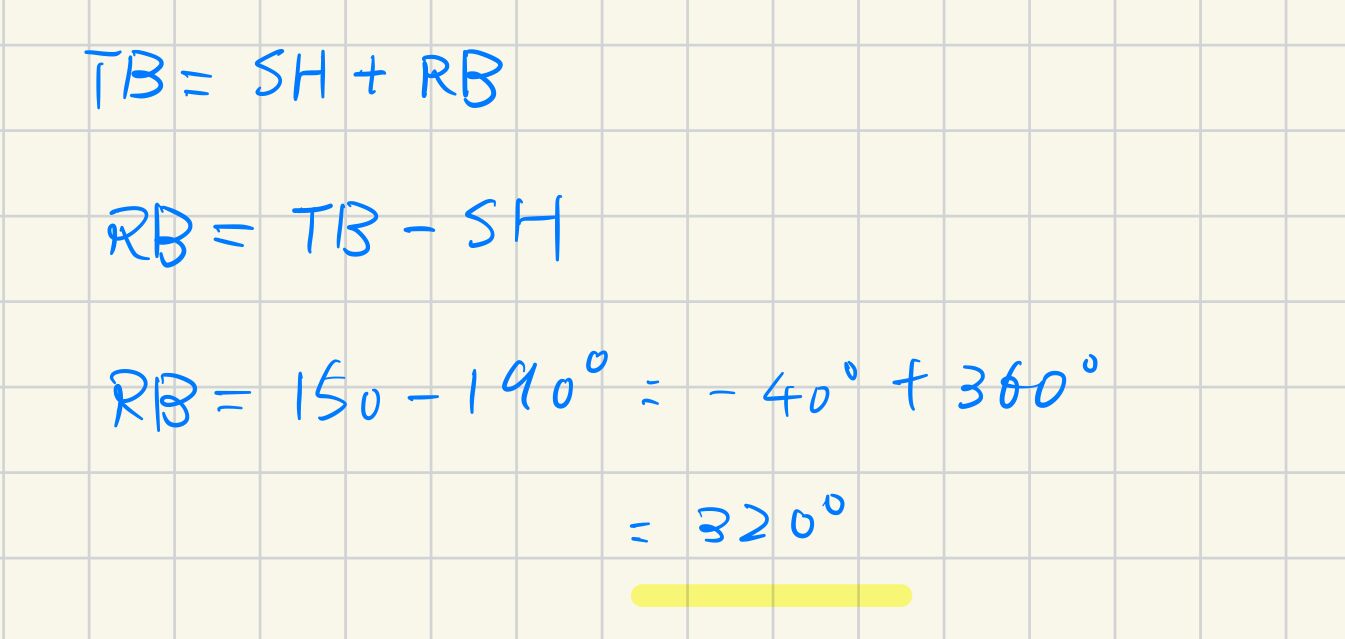 TB = SH + RB
RB = TB - SH
RB = 150 - 190° = -40° + 360°
= 320°